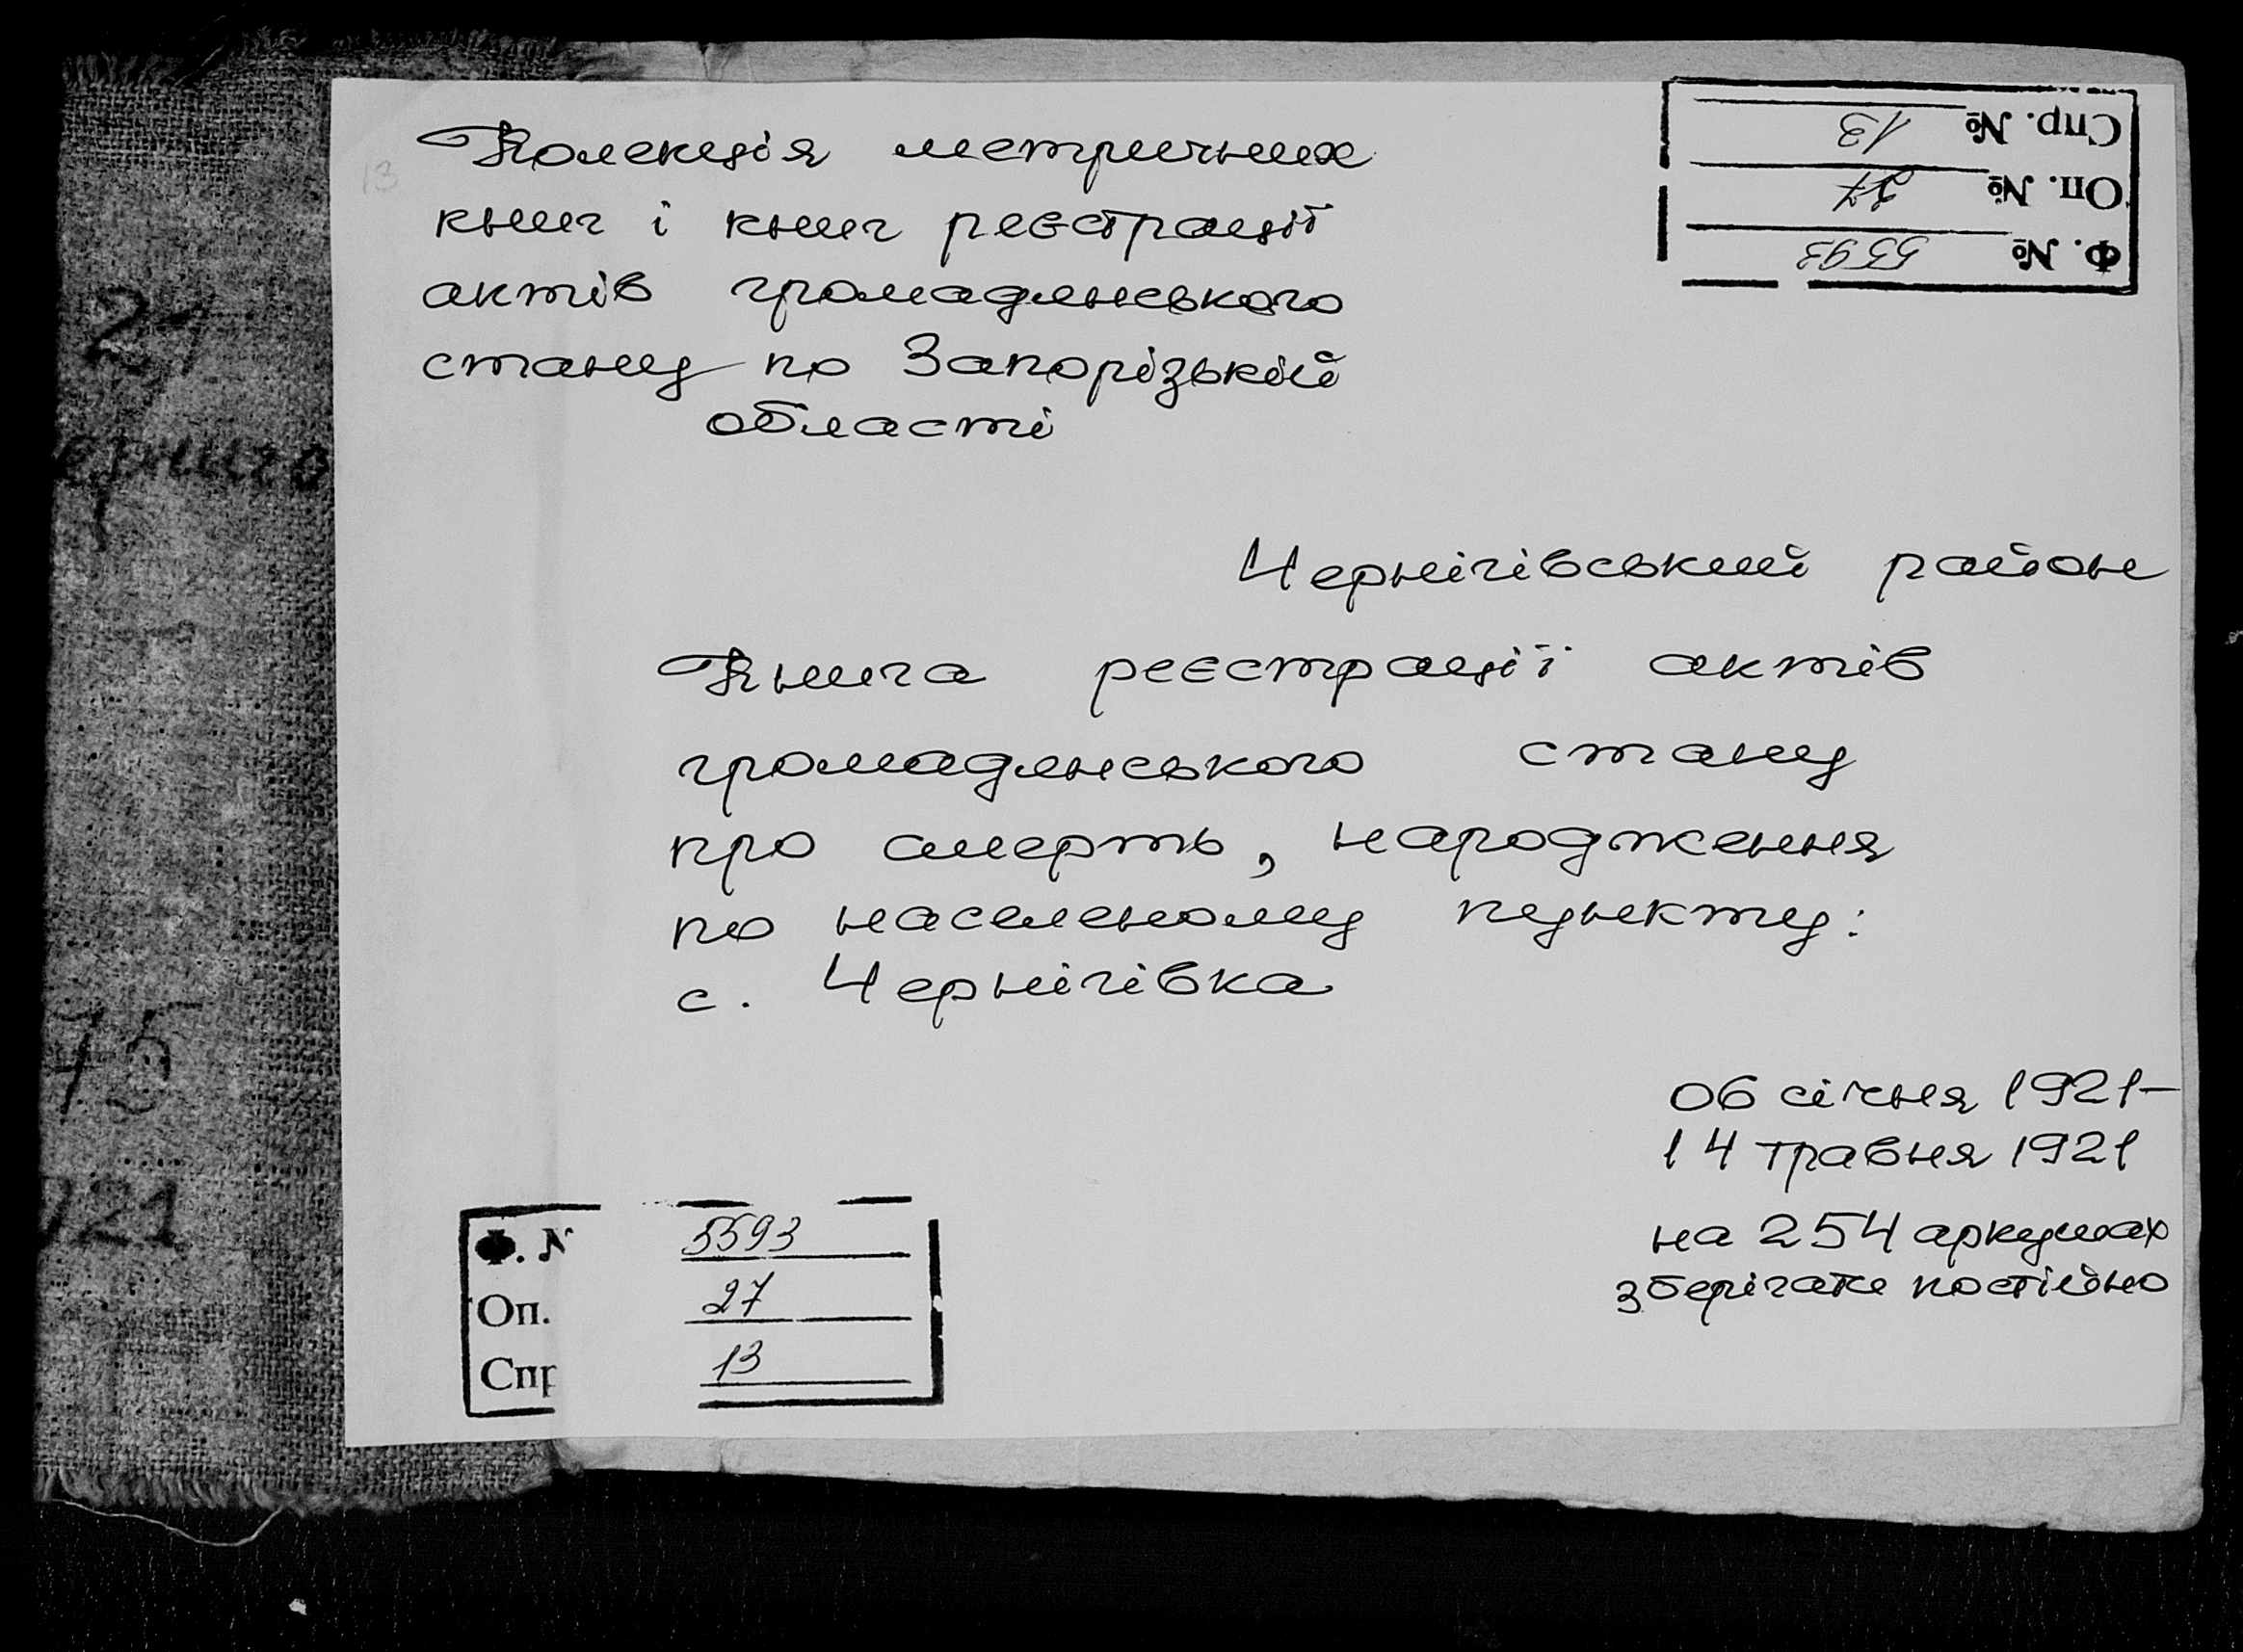 Колекція метричних
книг і книг реєстрації
актів громадянського
стану по Запорізькій
області
Спр. № 13
Оп. № 27
Ф. № 5593
13
Чернігівський район
Книга реєстрації актів
громадянського стану
про смерть, народження
по населеному пункту:
с. Чернігівка
06 січня 1921-
14 травня 1921
на 254 аркушах
зберігати постійно
Ф. № 5593
Оп. 27
Спр 13
21
ерниго
75
921